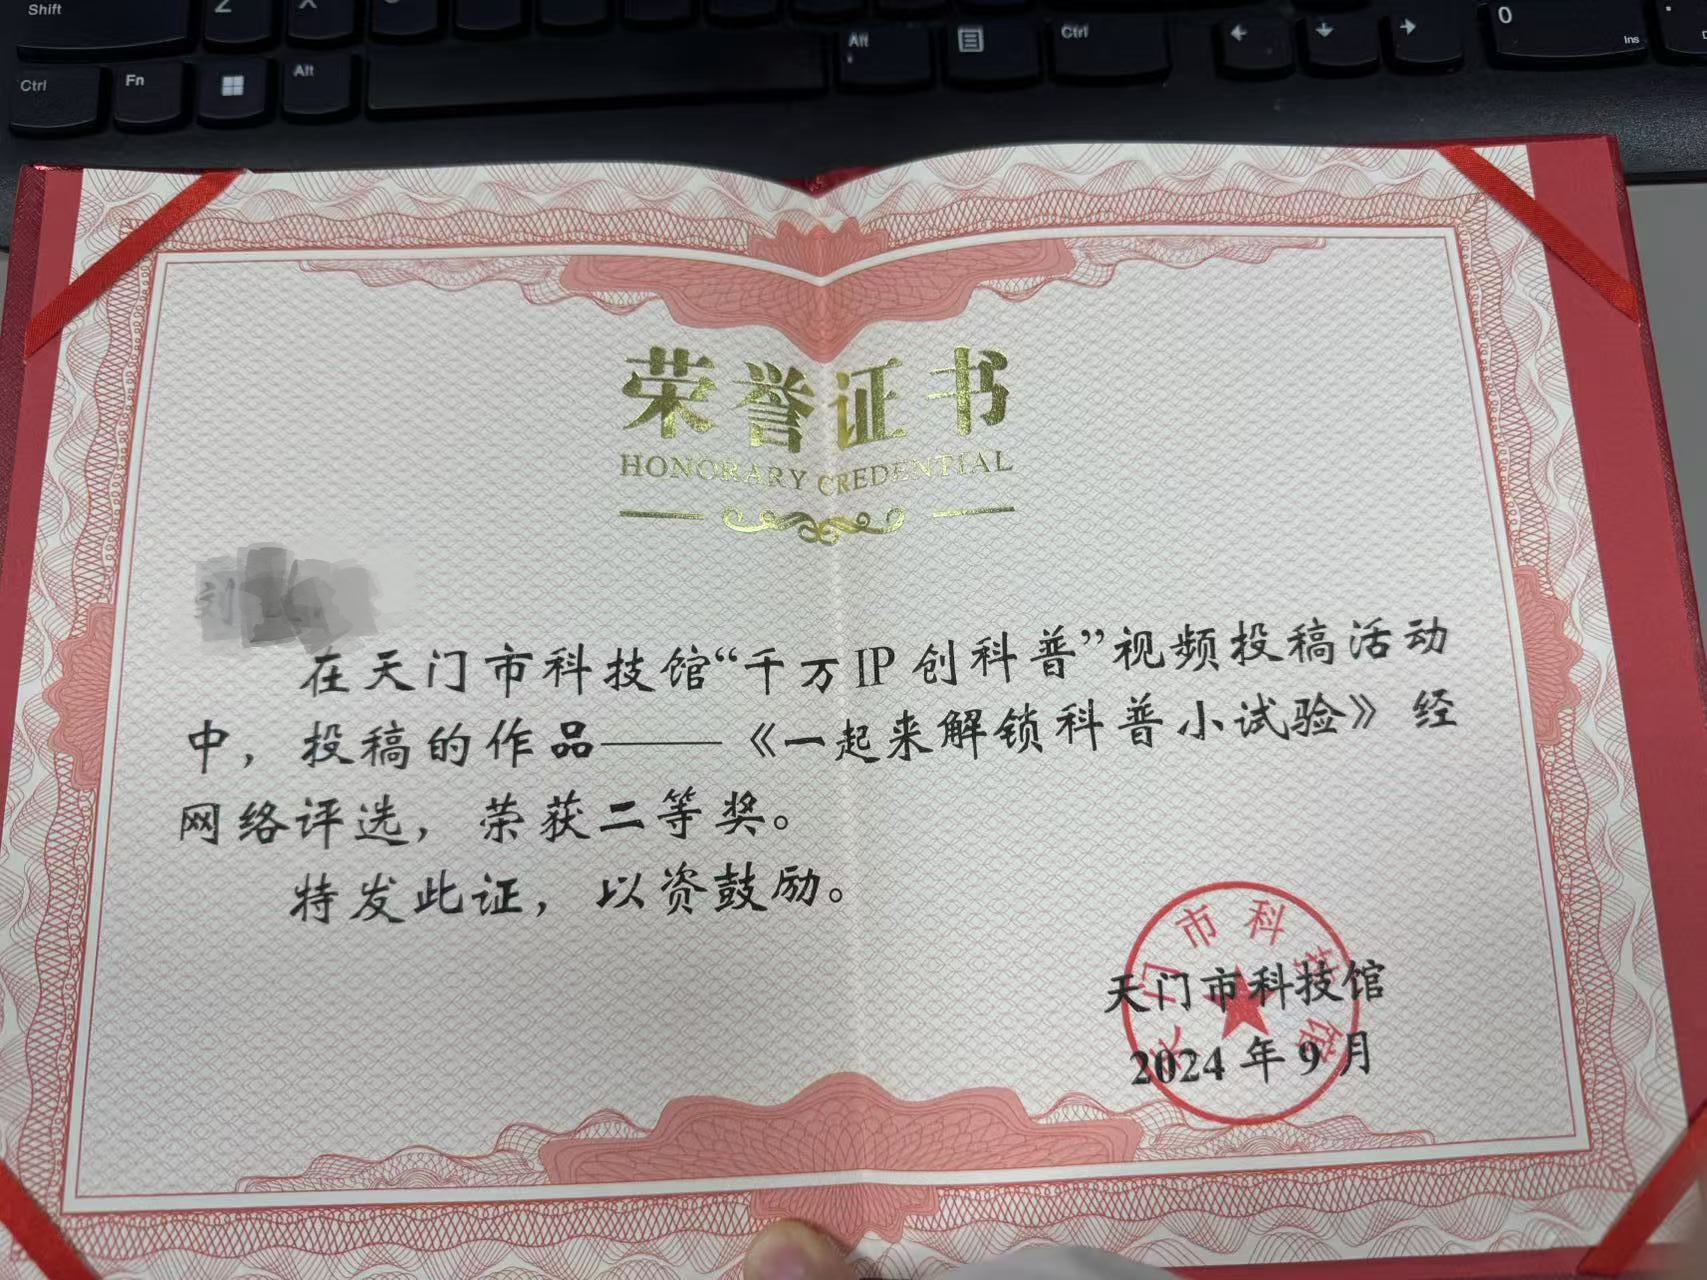 Shift
Z
X
Alt
Ctrl
0
Ins
Ctrl
Fn
Alt
荣誉证书
HONORARY CREDENTIAL
刘
在天门市科技馆“千万IP创科普”视频投稿活动
中，投稿的作品——《一起来解锁科普小试验》经
网络评选，荣获二等奖。
特发此证，以资鼓励。
天门市科技馆
天门市科技馆
2024年9月